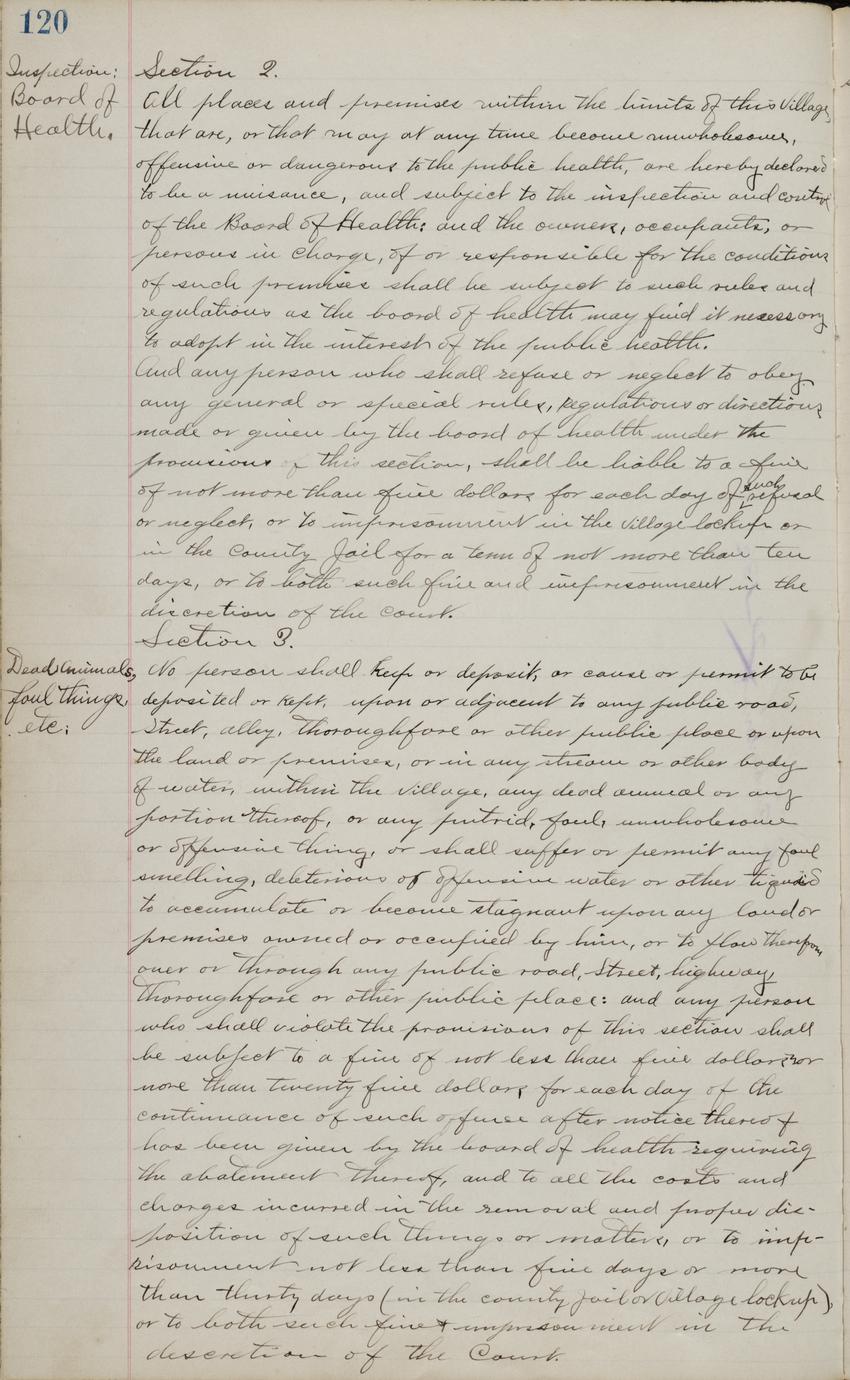 120
Inspection:
Board of
Health.
Section 2.
All places and premises within the limits of this Village,
that are, or that may at any time become unwholesome,
offensive or dangerous to the public health, are hereby declared
to be a nuisance, and subject to the inspection and control
of the Board of Health: and the owners, occupants, or
persons in charge, of or responsible for the conditions
of such premises shall be subject to such rules and
regulations as the board of health may find it necessary
to adopt in the interest of the public health.
And any person who shall refuse or neglect to obey
any general or special rules, regulations or directions
made or given by the board of health under the
provisions of this section, shall be liable to a fine
of not more than five dollars for each day of such refusal
or neglect, or to imprisonment in the village lockup or
in the County Jail for a term of not more than ten
days, or to both such fine and imprisonment in the
discretion of the court.
Section 3.
Dead animals,
foul things,
etc;
No person shall keep or deposit, or cause or permit to be
deposited or kept, upon or adjacent to any public road,
Street, alley, thoroughfare or other public place or upon
the land or premises, or in any stream or other body
of water, within the village, any dead animal or any
portion thereof, or any putrid, foul, unwholesome
or offensive thing, or shall suffer or permit any foul
smelling, deleterious or offensive water or other liquid
to accumulate or become stagnant upon any land or
premises owned or occupied by him, or to flow therefrom
over or through any public road, Street, highway,
thoroughfare or other public place: and any person
who shall violate the provisions of this section shall
be subject to a fine of not less than five dollars nor
more than twenty five dollars for each day of the
continuance of such offense after notice thereof
has been given by the board of health requiring
the abatement thereof, and to all the costs and
charges incurred in the removal and proper dis-
position of such things or matters, or to imp-
risonment not less than five days or more
than thirty days (in the county jail or village lockup),
or to both such fine & imprisonment in the
discretion of the Court.